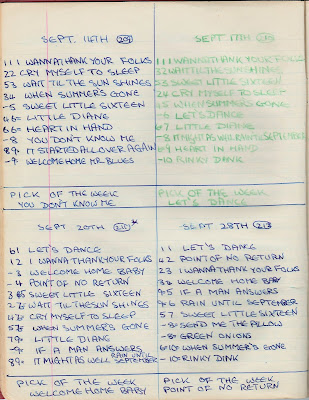 SEPT. 14TH 209
111 WANNA THANK YOUR FOLKS
22 CRY MYSELF TO SLEEP
53 WAIT TIL THE SUN SHINES
34 WHEN SUMMER'S GONE
-5 SWEET LITTLE SIXTEEN
46= LITTLE DIANE
66= HEART IN HAND
-8 YOU DON'T KNOW ME
89= IT STARTED ALL OVER AGAIN
-9= WELCOME HOME MR. BLUES
PICK OF THE WEEK
YOU DON'T KNOW ME
SEPT 17TH
111 WANNA THANK YOUR FOLKS
32 WAIT TIL THE SUN SHINES
53 SWEET LITTLE SIXTEEN
24 CRY MYSELF TO SLEEP
45 WHEN SUMMERS GONE
-6 LET'S DANCE
67 LITTLE DIANE
-8 IT MIGHT AS WELL RAIN TIL SEPTEMBER
69 HEART IN HAND
-10 RINKY DINK
PICK OF THE WEEK
LET'S DANCE
SEPT 20TH 211 *
61 LET'S DANCE
12 I WANNA THANK YOUR FOLKS
-3 WELCOME HOME BABY
-4 POINT OF NO RETURN
SWEET LITTLE SIXTEEN
WAIT TIL THE SUN SHINES
CRY MYSELF TO SLEEP
WHEN SUMMER'S GONE
79= LITTLE DIANE
-9= IF A MAN ANSWERS
89= IT MIGHT AS WELL RAIN UNTIL SEPTEMBER
PICK OF THE WEEK
WELCOME HOME BABY
SEPT 28TH 212
11 LET'S DANCE
42 POINT OF NO RETURN
23 I WANNA THANK YOUR FOLKS
34 WELCOME HOME BABY
95 IF A MAN ANSWERS
96 RAIN UNTIL SEPTEMBER
57 SWEET LITTLE SIXTEEN
-8= SEND ME THE PILLOW
-8= GREEN ONIONS
WHEN SUMMER'S GONE
-10= RINKY DINK
PICK OF THE WEEK
POINT OF NO RETURN